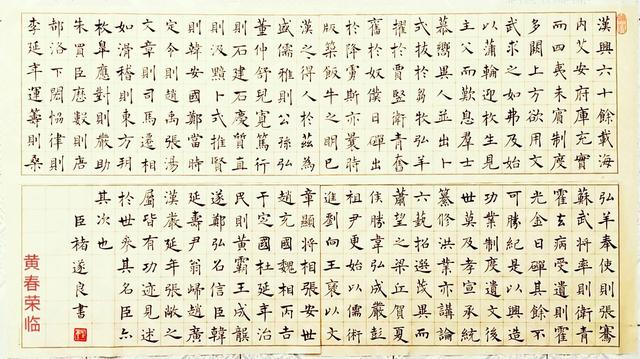 漢興六十餘載海
内艾安府庫充實
而四夷未賓制度
多闕上方欲用文
武求之如弗及始
以蒲輪迎枚生見
主父而歎息群士
慕嚮異人並出卜
式拔於芻牧弘羊
擢於賈豎衛青奮
舊於奴僕日磾出
於降虜斯亦曩時
版築飯牛之明已
漢之得人於茲為
盛儒雅則公孫弘
董仲舒兒寬篤行
則石建石慶質直
則汲黯卜式推賢
則韓安國鄭當時
定令則趙禹張湯
文章則司馬遷相
如滑稽則東方朔
枚皋應對則嚴助
朱買臣歷數則唐
都洛下閎協律則
李延年運籌則桑
弘羊奉使則張騫
蘇武將率則衛青
霍去病受遺則霍
光金日磾其餘不
可勝紀是以興造
功業制度遺文後
世莫及孝宣承統
纂修洪業亦講論
六藝招選茂異而
蕭望之梁丘賀夏
侯勝韋弘成嚴彭
祖尹更始以儒術
進劉向王褒以文
章顯將相張安世
趙充國魏相丙吉
于定國杜延年治
民則黃霸王成龔
遂鄭弘召信臣韓
延壽尹翁歸趙廣
漢嚴延年張敞之
屬皆有功迹見述
於世參其名臣亦
其次也
臣褚遂良書
黄春荣临